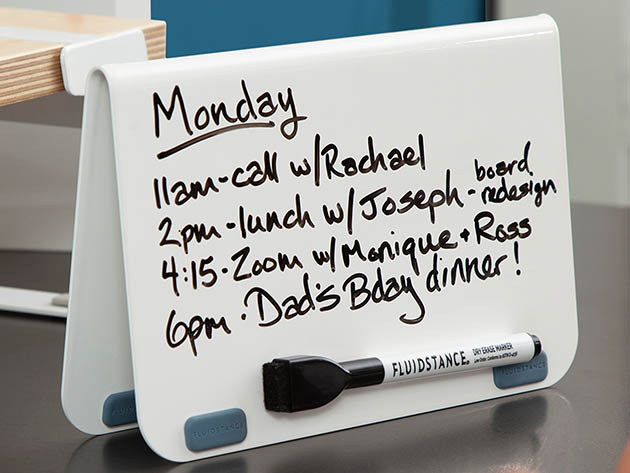 Monday
11am-call w/Rachael
2pm-lunch w/Joseph - board redesign
4:15-Zoom w/Monique + Ross
6pm - Dad's Bday dinner!
FLUIDSTANCE. DRY ERASE MARKER
FLUIDSTANCE
FLUIDSTANCE